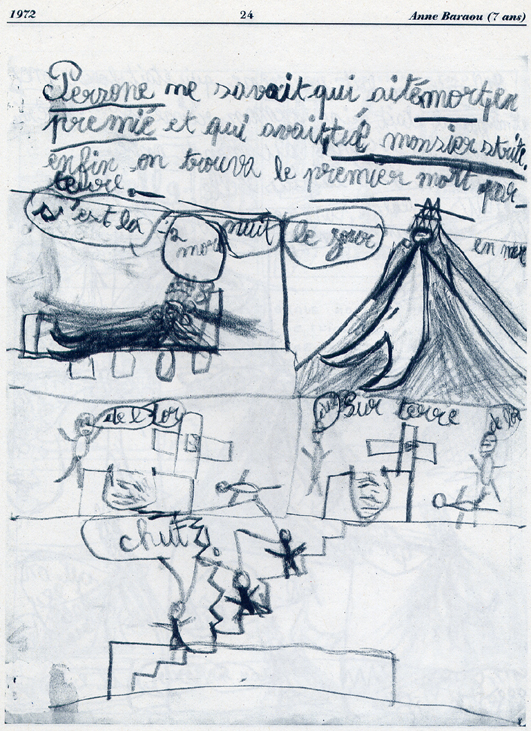 1972 24 Anne Baraou (7 ans)
Perrone ne savait qui aitémorten
premié et qui avait tué monsier strite.
enfin on trouva le premier mort par_
terre.
s'est la
nuit
le jour
a mor
en mer
de l'or
Sur terre
de l'or
chut